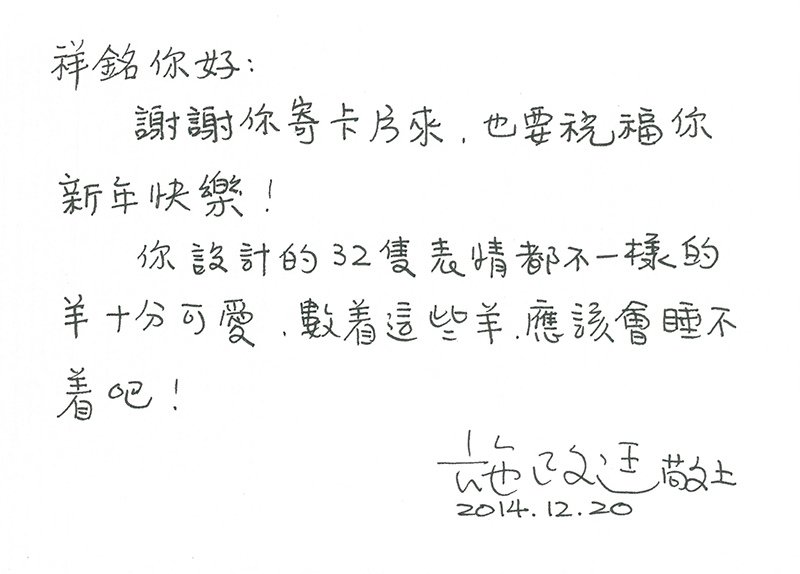 祥銘你好:
謝謝你寄卡片來，也要祝福你
新年快樂！
你設計的32隻表情都不一樣的
羊十分可愛，數着這些羊，應該會睡不
着吧！
施改廷敬上
2014.12.20